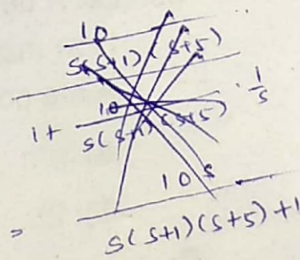 10
s(s+1)(s+5)
1 + 10
s(s+1)(s+5) · 1/s
= 10 s
s(s+1)(s+5)+1